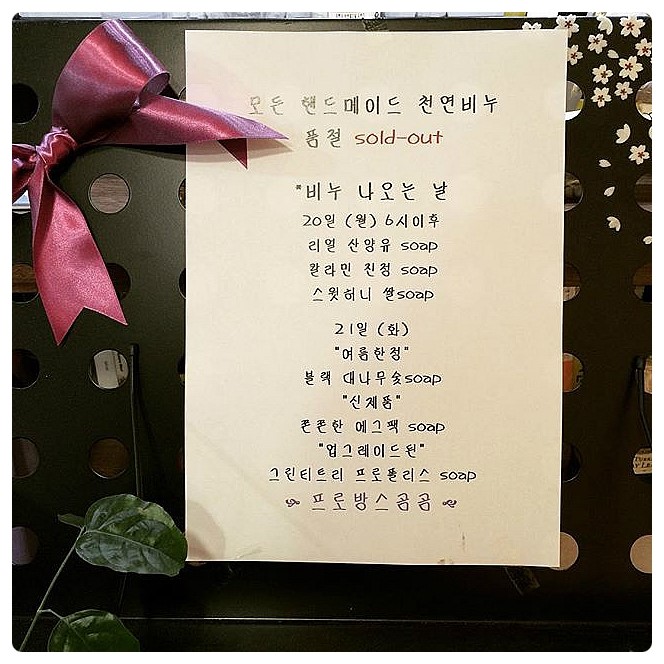 모든 핸드메이드 천연비누
품절 sold-out
*비누 나오는 날
20일 (월) 6시이후
리얼 산양유 soap
칼라민 진정 soap
스윗허니 쌀soap
21일 (화)
"여름한정"
블랙 대나무숯soap
"신제품"
쫀쫀한 에그팩 soap
"업그레이드된"
그린티트리 프로폴리스 soap
프로방스곰곰